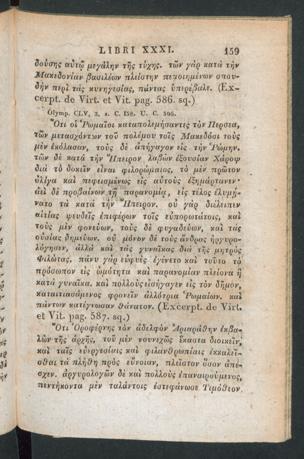 LIBRI XXXI. 159
δούσης αὐτῷ μεγάλην τῆς τύχης. τῶν γὰρ κατὰ τὴν
Μακεδονίαν βασιλέων πλείστην πεποιημένων σπου-
δὴν περὶ τὰς κυνηγεσίας, πάντας ὑπερέβαλε. (Ex-
cerpt. de Virt. et Vit. pag. 586. sq.)
Olymp. CLV, 2. a. C. U. C.
Ὅτι οἱ Ῥωμαῖοι καταπολεμήσαντες τὸν Περσέα,
τῶν μετασχόντων τοῦ πολέμου τοῖς Μακεδόσι τοὺς
μὲν ἐκόλασαν, τοὺς δὲ ἀπήγαγον εἰς τὴν Ῥώμην.
τῶν δὲ κατὰ τὴν Ἤπειρον λαβὼν ἐξουσίαν Χάροψ
διὰ τὸ δοκεῖν εἶναι φιλορώμαιος, τὸ μὲν πρῶτον
ὀλίγα καὶ πεφεισμένως εἰς αὐτοὺς ἐξημάρτανεν·
ἀεὶ δὲ προβαίνων τῇ παρανομίᾳ, εἰς τέλος ἐλυμή-
νατο τὰ κατὰ τὴν Ἤπειρον. οὐ γὰρ διέλειπεν
αἰτίας ψευδεῖς ἐπιφέρων τοῖς εὐπορωτάτοις, καὶ
τοὺς μὲν φονεύων, τοὺς δὲ φυγαδεύων, καὶ τὰς
οὐσίας δημεύων, οὐ μόνον δὲ τοὺς ἄνδρας ἠργυρο-
λόγησεν, ἀλλὰ καὶ τὰς γυναῖκας διὰ τῆς μητρὸς
Φιλώτας. πάνυ γὰρ εὐφυὲς ἐγένετο καὶ τοῦτο τὸ
πρόσωπον εἰς ὠμότητα καὶ παρανομίαν πλείονα ἢ
κατὰ γυναῖκα. καὶ πολλοὺς εἰσήγαγεν εἰς τὸν δῆμον,
καταιτιασάμενος φρονεῖν ἀλλότρια Ῥωμαίων. καὶ
πάντων κατέγνωσαν θάνατον. (Excerpt. de Virt.
et Vit. pag. 587. sq.)
Ὅτι Ὀροφέρνης τὸν ἀδελφὸν Ἀριαράθην ἐκβα-
λὼν τῆς ἀρχῆς, τοῦ μὲν νουνεχῶς ἕκαστα διοικεῖν,
καὶ ταῖς εὐεργεσίαις καὶ φιλανθρωπίαις ἐκκαλεῖ-
σθαι τὰ πλήθη πρὸς εὔνοιαν, πλεῖστον ὅσον ἀπέ-
σχεν. ἀργυρολογῶν δὲ καὶ πολλοὺς ἐπαναιρούμενος,
πεντήκοντα μὲν ταλάντοις ἐστεφάνωσε Τιμόθεον.